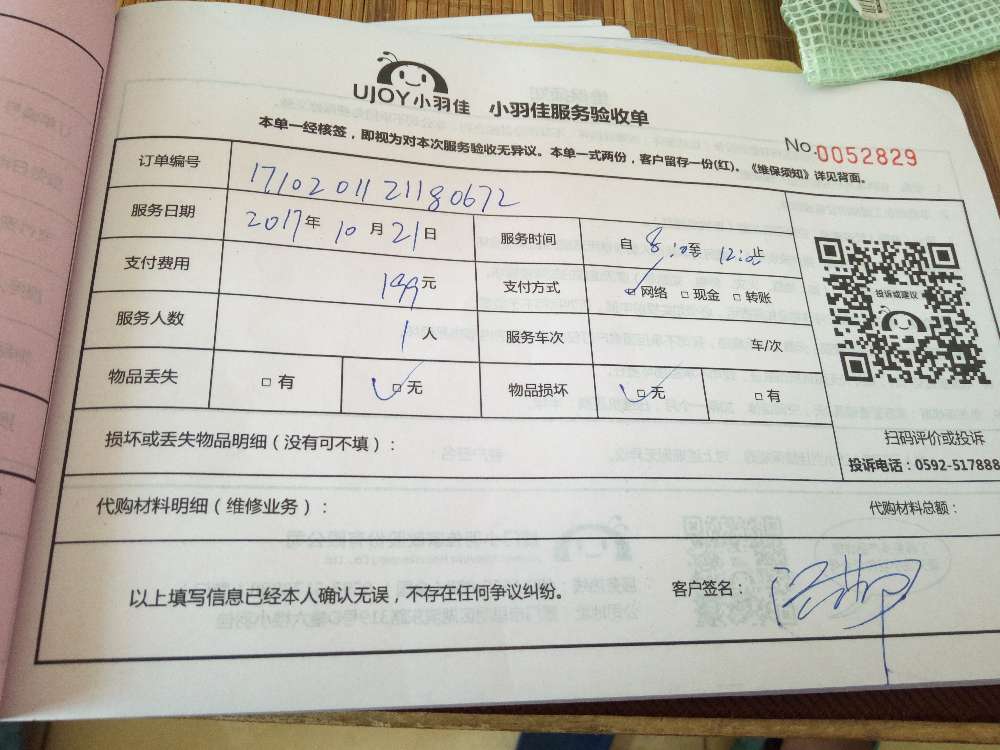 UJOY小羽佳 小羽佳服务验收单
No.0052829
本单一经核签，即视为对本次服务验收无异议。本单一式两份，客户留存一份(红)。《维保须知》详见背面。
订单编号 1710201121180672
服务日期 2017年 10月21日 服务时间 自 8:00至 12:00止
支付费用 199元 支付方式 网络 现金 转账
服务人数 1人 服务车次 车/次
物品丢失 有 无 物品损坏 无 有
投诉或建议
扫码评价或投诉
投诉电话：0592-517888
损坏或丢失物品明细（没有可不填）：
代购材料明细（维修业务）： 代购材料总额：
以上填写信息已经本人确认无误，不存在任何争议纠纷。 客户签名：